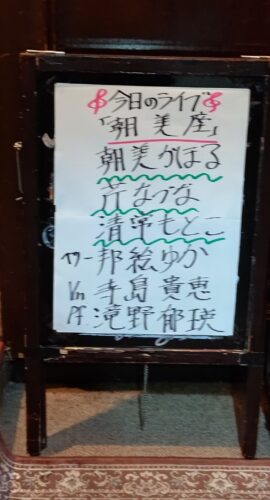 今日のライブ
「朝美座」
朝美かほる
芹なづな
清華もとこ
ベリー邦絵ゆか
Vn 寺島貴恵
Pf 滝野郁瑛